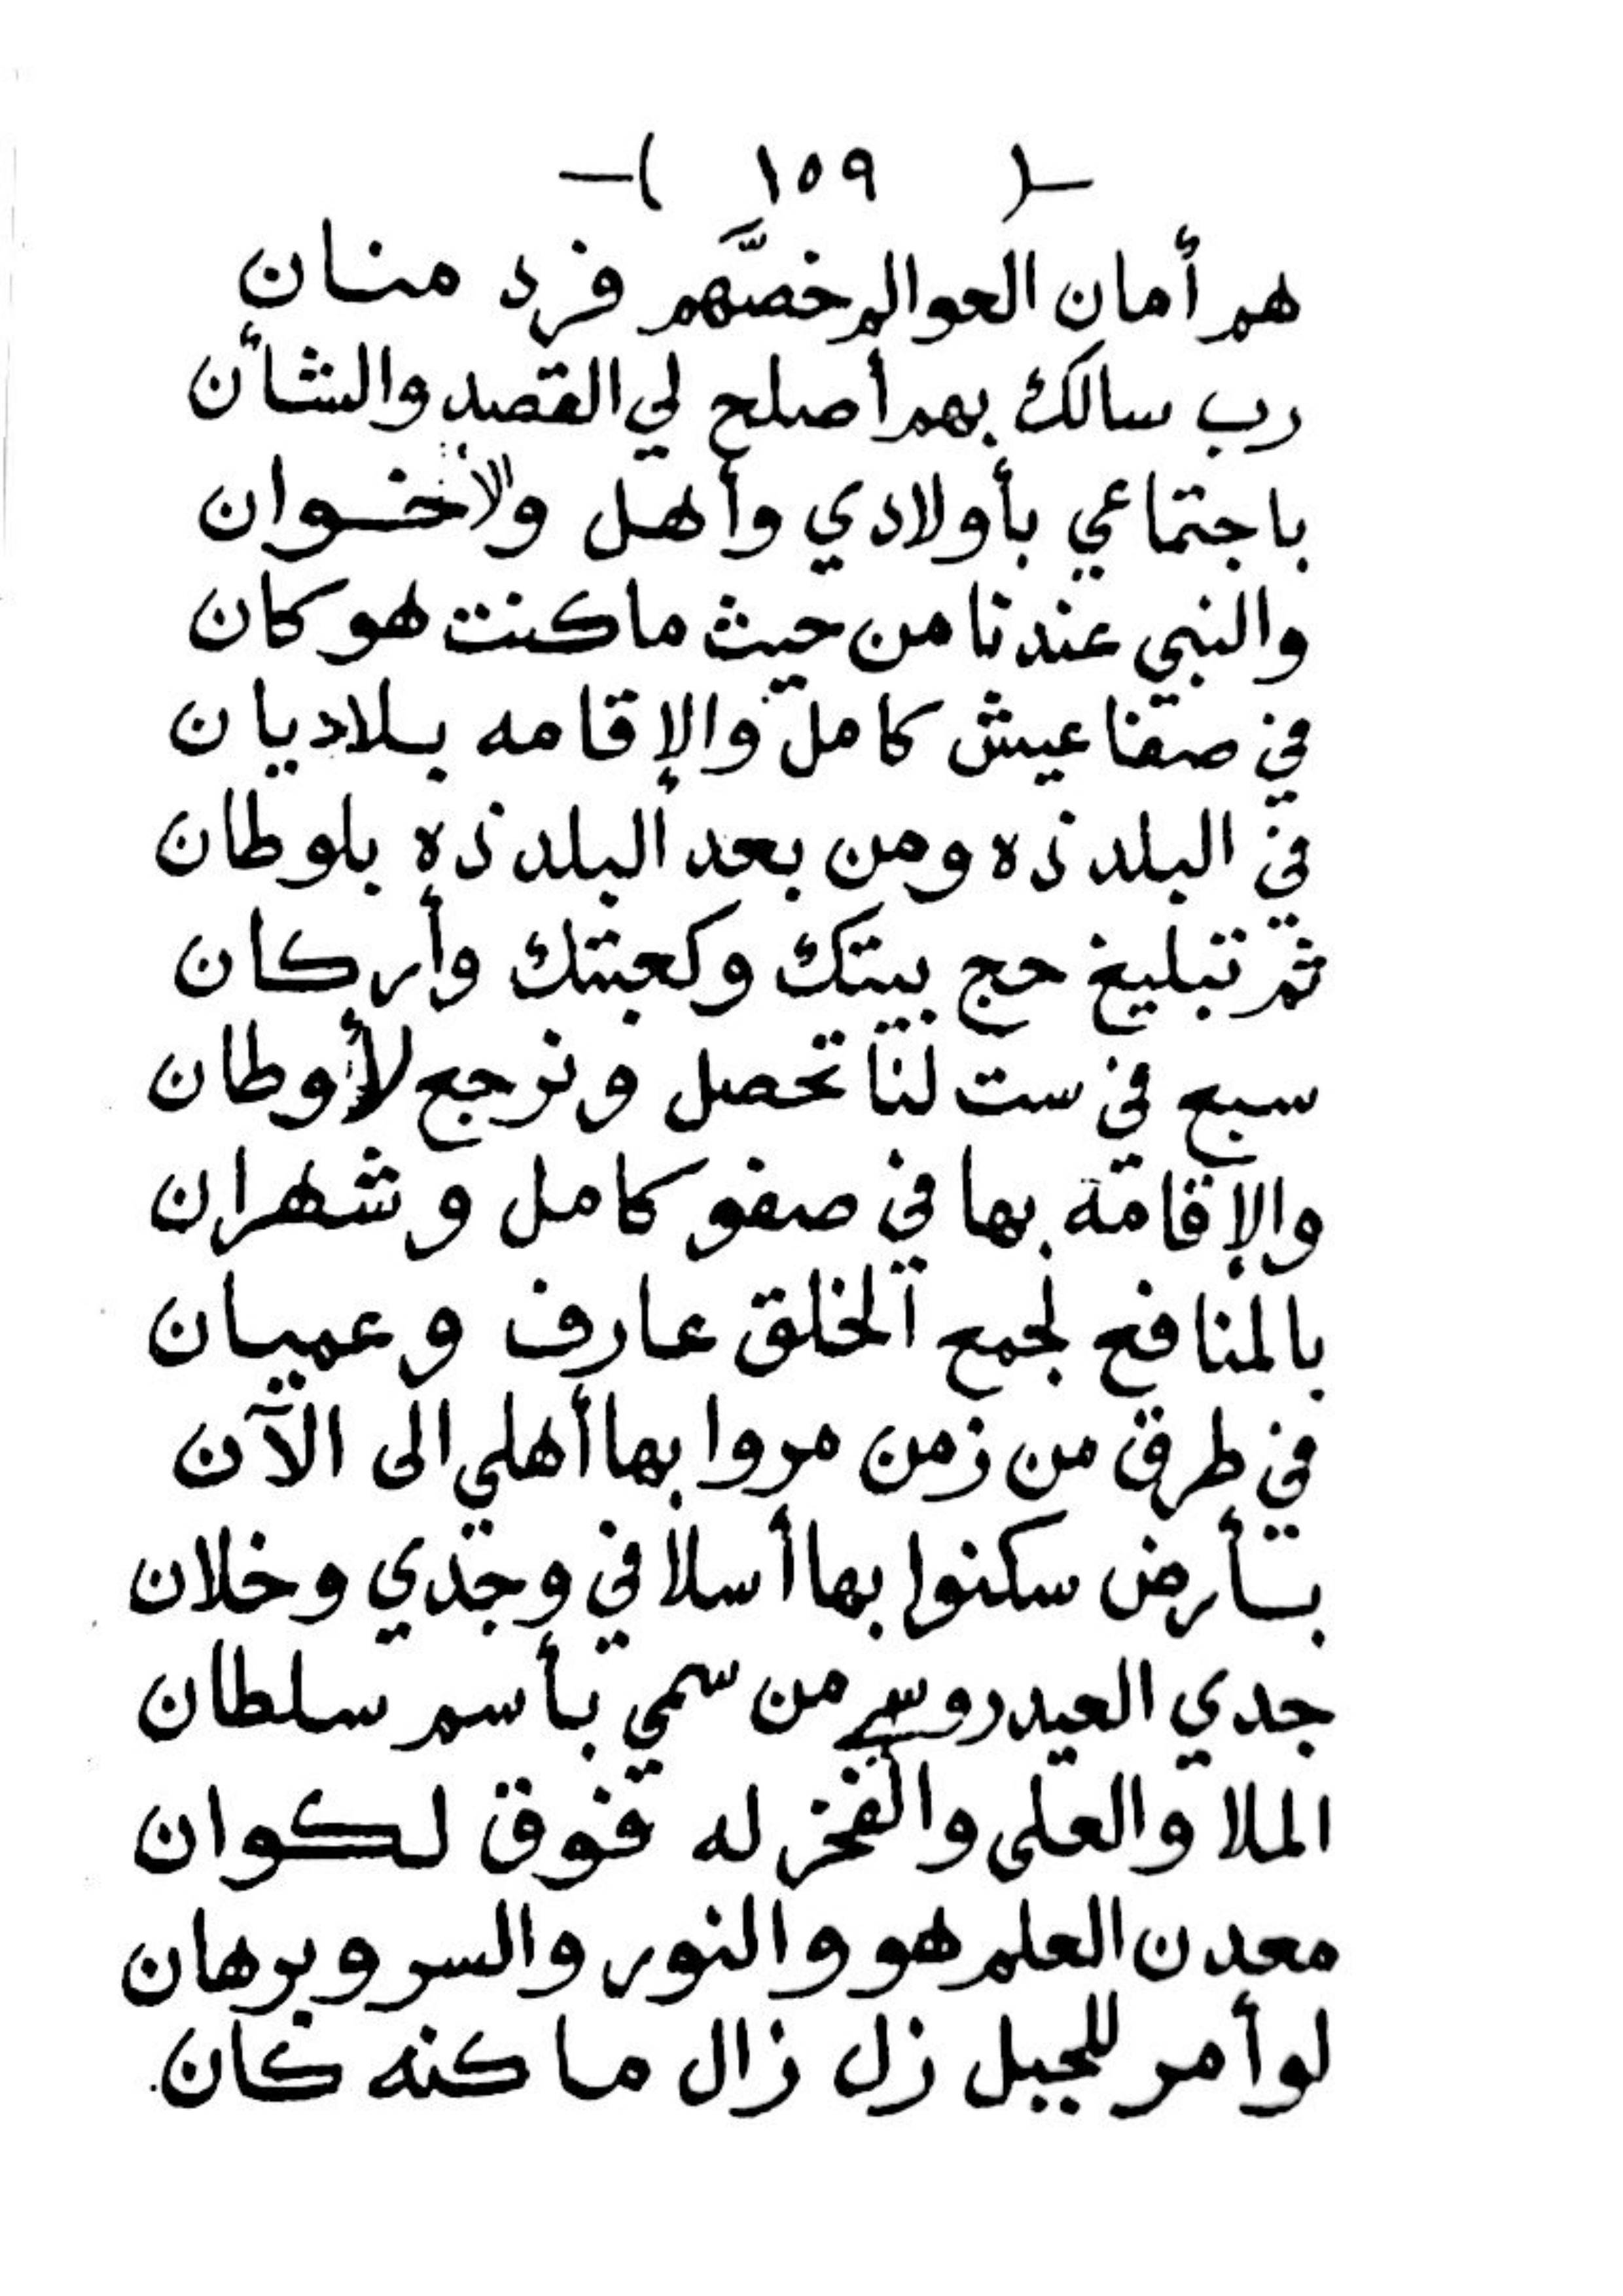 -( ١٥٩ )-
هم أمان العوالم خصَّهم فرد منان
رب سالك بهم أصلح لي القصد والشأن
باجتماعي بأولادي وأهل والاخوان
والنبي عندنا من حيث ما كنت هو كان
في صفا عيش كامل والإقامه بلاديان
في البلد ذه ومن بعد البلد ذه بلوطان
ثم تبليغ حج بيتك وكعبتك وأركان
سبع في ست لنا تحصل ونرجع لأوطان
والإقامة بها في صفو كامل وشهران
بالمنافع لجمع الخلق عارف وعميان
في طرق من زمن مروا بها أهلي الى الآن
بأرض سكنوا بها أسلافي وجدي وخلان
جدي العيدروس من سمي بأسم سلطان
الملا والعلى والفخر له فوق لكوان
معدن العلم هو والنور والسر وبرهان
لو أمر للجبل زل زال ما كنه كان